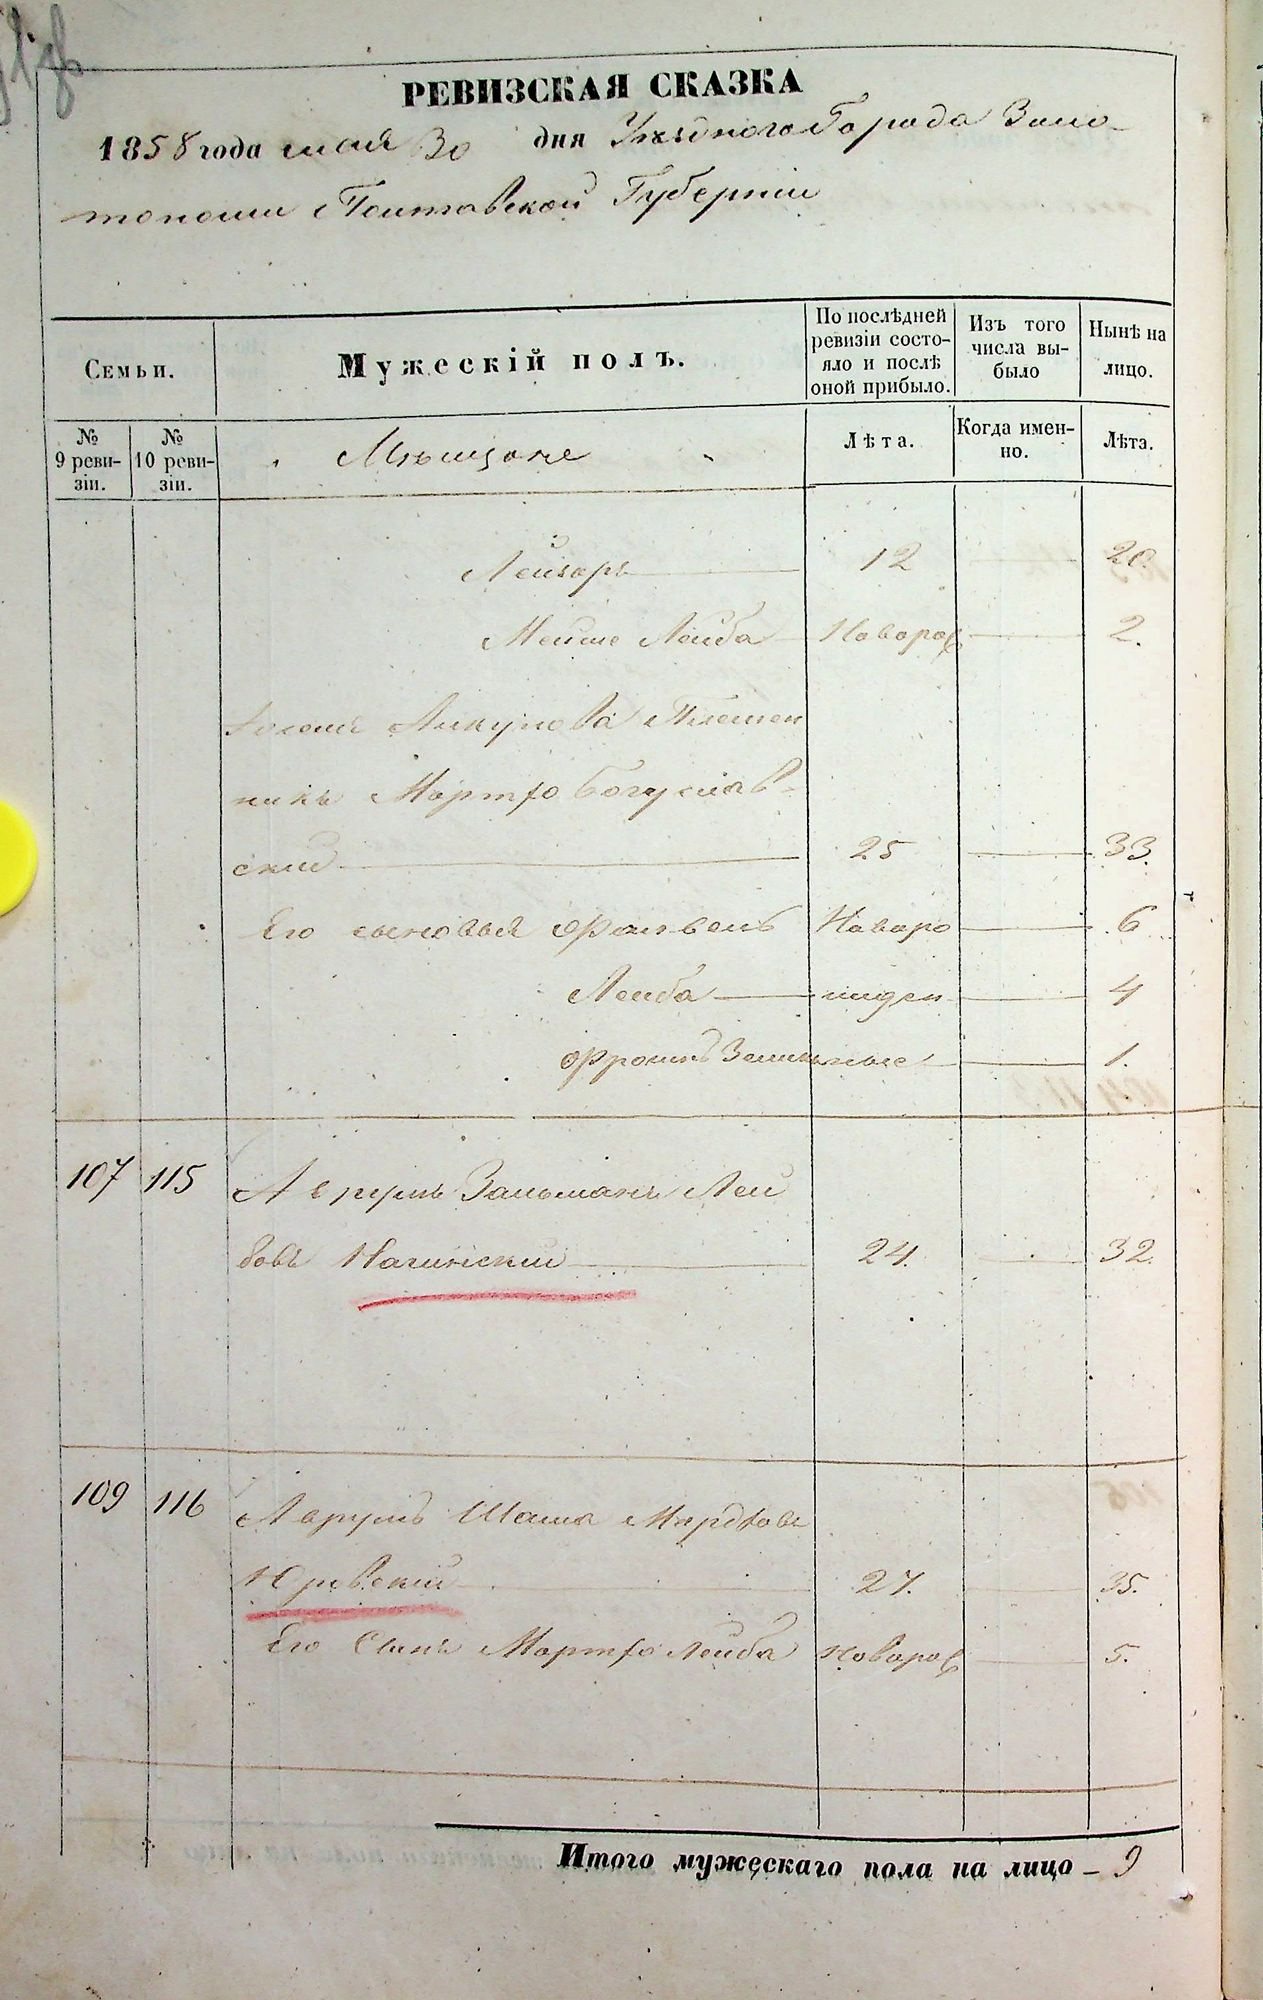 РЕВИЗСКАЯ СКАЗКА
1858 года мая 30 дня Уѣзднаго Города Золо-
тоноши Полтавской Губерніи
Семьи.
Мужескій полъ.
По послѣдней ревизіи состо-яло и послѣ оной прибыло.
Изъ того числа вы-было
Нынѣ на лицо.
№ 9 реви-зіи.
№ 10 реви-зіи.
Мѣщане
Лѣта.
Когда имен-но.
Лѣта.
Лейзоръ 12 20.
Мейше Лейба Новорож 2.
Плѣмен
никъ Мортхо Богуслав-
скій 25 33.
Его сыновья Файвель Новоро 6
Лейба жден 4
Фроимъ Зельманъ ные 1.
107 115 Аврумъ Зальманъ Лей
бовъ Нагинскій 24. 32.
109 116 Аврумъ Шлема Мордхов
Юровскій 27. 35.
Его Сынъ Мортхо Лейба Новорож 5.
Итого мужескаго пола на лицо – 9